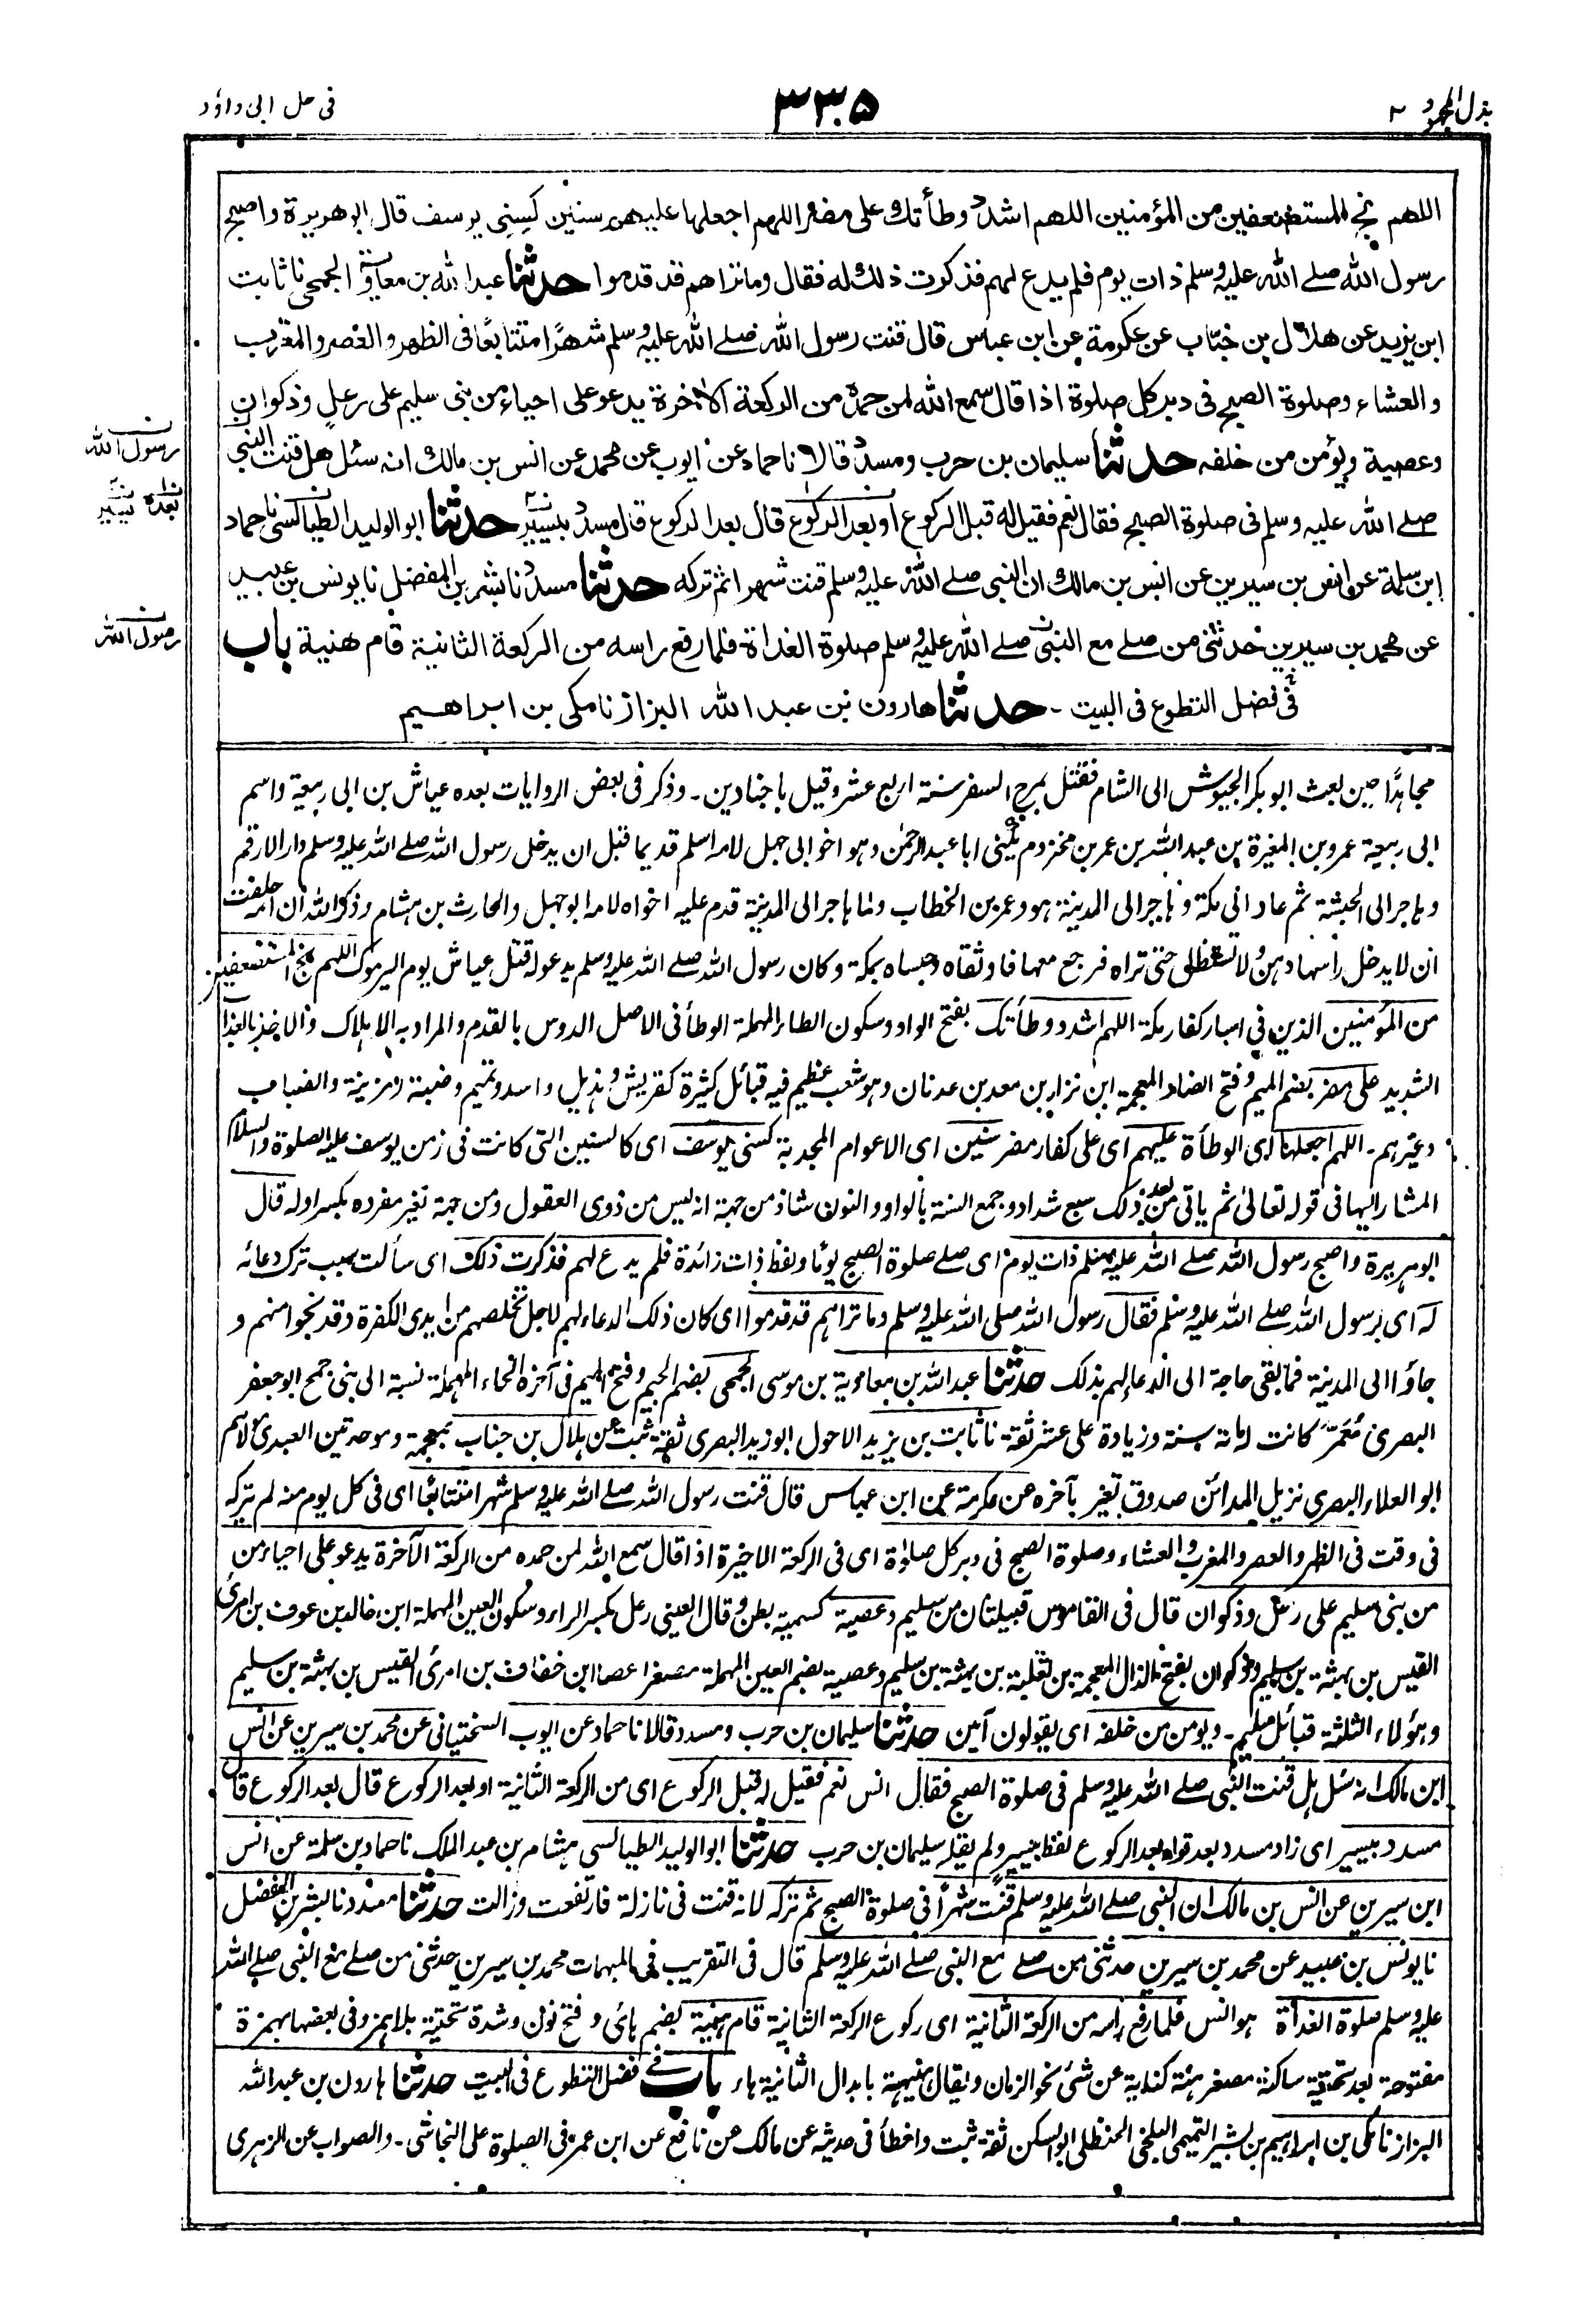 بذل المجهود ٢
٣٣٥
فى حل ابى داؤد
اللهم نج المستضعفين من المؤمنين اللهم اشدد وطأتك على مضر اللهم اجعلها عليهم سنين كسنى يوسف قال ابو هريرة واصبح
رسول الله صلے الله عليه وسلم ذات يوم فلم يدع لهم فذكرت ذلك له فقال وما تراهم قد قدموا حدثنا عبد الله بن معاوية الجمحى نا ثابت
ابن يزيد عن هلال بن خبّاب عن عكرمة عن ابن عباس قال قنت رسول الله صلے الله عليه وسلم شهرًا متتابعًا فى الظهر والعصر والمغرب
والعشاء وصلوة الصبح فى دبر كل صلوة اذا قال سمع الله لمن حمده من الركعة الاخرة يدعو على احياء من بنى سليم على رعل وذكوان
وعصية ويؤمن من خلفه حدثنا سليمان بن حرب ومسدد قالا نا حماد عن ايوب عن محمد عن انس بن مالك انه سئل هل قنت النبى
رسول الله
صلے الله عليه وسلم فى صلوة الصبح فقال نعم فقيل له قبل الركوع او بعد الركوع قال بعد الركوع قال مسدد بيسير حدثنا ابو الوليد الطيالسى نا حماد
بعده يسير
ابن سلمة عن انس بن سيرين عن انس بن مالك ان النبى صلے الله عليه وسلم قنت شهرا ثم تركه حدثنا مسدد نا بشر بن المفضل نا يونس بن عبيد
عن محمد بن سيرين حدثنى من صلے مع النبى صلے الله عليه وسلم صلوة الغداة فلما رفع راسه من الركعة الثانية قام هنية باب
رسول الله
فى فضل التطوع فى البيت - حدثنا هارون بن عبد الله البزاز نا مكى بن ابراهيم
مجاهدًا حين بعث ابو بكر الجيوش الى الشام فقتل بمرج السفر سنة اربع عشر وقيل باجنادين - وذكر فى بعض الروايات بعده عياش بن ابى ربيعة واسم
ابى ربيعة عمرو بن المغيرة بن عبد الله بن عمر بن مخزوم يكنى ابا عبد الرحمن وهو اخو ابى جهل لامه اسلم قديما قبل ان يدخل رسول الله صلے الله عليه وسلم دار الارقم
وهاجر الى الحبشة ثم عاد الى مكة وهاجر الى المدينة هو وعمر بن الخطاب ولما هاجر الى المدينة قدم عليه اخواه لامه ابو جهل والحارث بن هشام وذكرا له ان امه حلفت
ان لا يدخل راسها دهن ولا تستظل حتى تراه فرجع معهما فاوثقاه وحبساه بمكة وكان رسول الله صلے الله عليه وسلم يدعو له قتل عياش يوم اليرموك اللهم نج المستضعفين
من المؤمنين الذين فى اسار كفار مكة اللهم اشدد وطأتك بفتح الواو وسكون الطاء المهملة الوطأ فى الاصل الدوس بالقدم والمراد به الاهلاك والاخذ بالعذاب
الشديد على مضر بضم الميم وفتح الضاد المعجمة ابن نزار بن معد بن عدنان وهو شعب عظيم فيه قبائل كثيرة كقريش وهذيل واسد وتميم وضبة ومزينة والضباب
وغيرهم - اللهم اجعلها اى الوطأة عليهم اى على كفار مضر سنين اى الاعوام المجدبة كسنى يوسف اى كالسنين التى كانت فى زمن يوسف عليه الصلوة والسلام
المشار اليها فى قوله تعالىٰ ثم ياتى من بعد ذلك سبع شداد وجمع السنة بالواو والنون شاذ من جهة انه ليس من ذوى العقول ومن جهة تغير مفرده بكسر اوله قال
ابو هريرة واصبح رسول الله صلے الله عليه وسلم ذات يوم اى صلے صلوة الصبح يومًا ولفظ ذات زائدة فلم يدع لهم فذكرت ذلك اى سألت سبب ترك دعائه
له اى لرسول الله صلے الله عليه وسلم فقال رسول الله صلى الله عليه وسلم وما تراهم قد قدموا اى كان ذلك الدعاء لهم لاجل تخلصهم من ايدى الكفرة وقد نجوا منهم و
جاؤا الى المدينة فما بقى حاجة الى الدعاء لهم بذلك حدثنا عبد الله بن معاوية بن موسى الجمحى بضم الجيم وفتح الميم فى آخره الحاء المهملة نسبة الى بنى جمح ابو جعفر
البصرى مُعَمَّر كانت له مائة سنة وزيادة على عشر ثقة نا ثابت بن يزيد الاحول ابو زيد البصرى ثقة ثبت عن هلال بن خباب بمعجمة وموحدتين العبدى مولاهم
ابو العلاء البصرى نزيل المدائن صدوق تغير بآخره عن عكرمة عن ابن عباس قال قنت رسول الله صلے الله عليه وسلم شهرا متتابعًا اى فى كل يوم منه لم يتركه
فى وقت فى الظهر والعصر والمغرب والعشاء وصلوة الصبح فى دبر كل صلوٰة اى فى الركعة الاخيرة اذا قال سمع الله لمن حمده من الركعة الآخرة يدعو على احياء من
من بنى سليم على رعل وذكوان قال فى القاموس قبيلتان من سليم وعصية كسمية بطن وقال العينى رعل بكسر الراء وسكون العين المهملة ابن خالد بن عوف بن امرئ
القيس بن بهثة بن سليم وذكوان بفتح الذال المعجمة بن ثعلبة بن بهثة بن سليم وعصية بضم العين المهملة مصغر اعصا ابن خفاف بن امرئ القيس بن بهثة بن سليم
وهؤلاء الثلثة قبائل سليم - ويومن من خلفه اى يقولون آمين حدثنا سليمان بن حرب ومسدد قالا نا حماد عن ايوب السختيانى عن محمد بن سيرين عن انس
ابن مالك انه سئل هل قنت النبى صلے الله عليه وسلم فى صلوة الصبح فقال انس نعم فقيل له قبل الركوع اى من الركعة الثانية او بعد الركوع قال بعد الركوع قال
مسدد بيسير اى زاد مسدد بعد قوله بعد الركوع لفظ بيسير ولم يقله سليمان بن حرب حدثنا ابو الوليد الطيالسى هشام بن عبد الملك نا حماد بن سلمة عن انس
ابن سيرين عن انس بن مالك ان النبى صلے الله عليه وسلم قنت شهرًا فى صلوة الصبح ثم تركه لانه قنت فى نازلة فارتفعت وزالت حدثنا مسدد نا بشر بن المفضل
نا يونس بن عبيد عن محمد بن سيرين حدثنى من صلے مع النبى صلے الله عليه وسلم قال فى التقريب فى المبهمات محمد بن سيرين حدثنى من صلے مع النبى صلے الله
عليه وسلم صلوة الغداة هو انس فلما رفع راسه من الركعة الثانية اى ركوع الركعة الثانية قام هنية بضم هائى وفتح نون وشدة تحتية بلا همز وفى بعضها بهمزة
مفتوحة بعد تحتية ساكنة مصغر هنة كناية عن شئ نحو الزمان ويقال هنيهة بابدال الثانية هاء باب فے فضل التطوع فى البيت حدثنا هارون بن عبد الله
البزاز نا مكى بن ابراهيم بن بشير التميمى البلخى الحنظلى ابو السكن ثقة ثبت واخطأ فى حديثه عن مالك عن نافع عن ابن عمر فى الصلوة على النجاشى - والصواب عن الزهرى